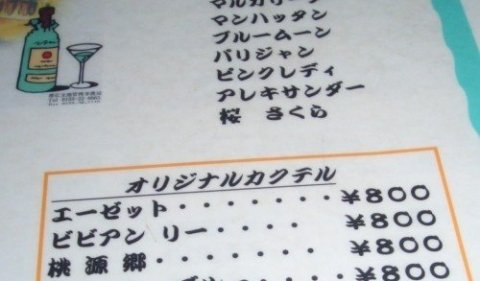 マルガリータ
マンハッタン
ブルームーン
バリジャン
ピンクレディ
アレキサンダー
桜 さくら
オリジナルカクテル
エーゼット・・・・・・・¥800
ビビアン リー・・・・・¥800
桃源郷・・・・・・・¥800
¥800